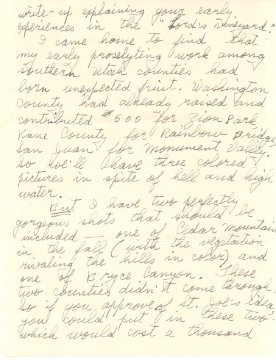 write-up explaining your early
experiences in the "Lord's Vineyard".
I came home to find that
my early proselyting work among
southern Utah counties had
born unexpected fruit. Washington
County had already raised and
contributed $500 for Zion Park
Kane County for Rainbow Bridge
San Juan for Monument Valley
so we'll have three colored
pictures in spite of hell and high
water.
But I have two perfectly
gorgeous shots that should be
included — one of Cedar Mountain
in the fall (with the vegetation
rivaling the hills in color) and
one of Bryce Canyon. These
two counties didn't come through
so if you approve of it. Joe's idea
you could put in these two
which would cost a thousand